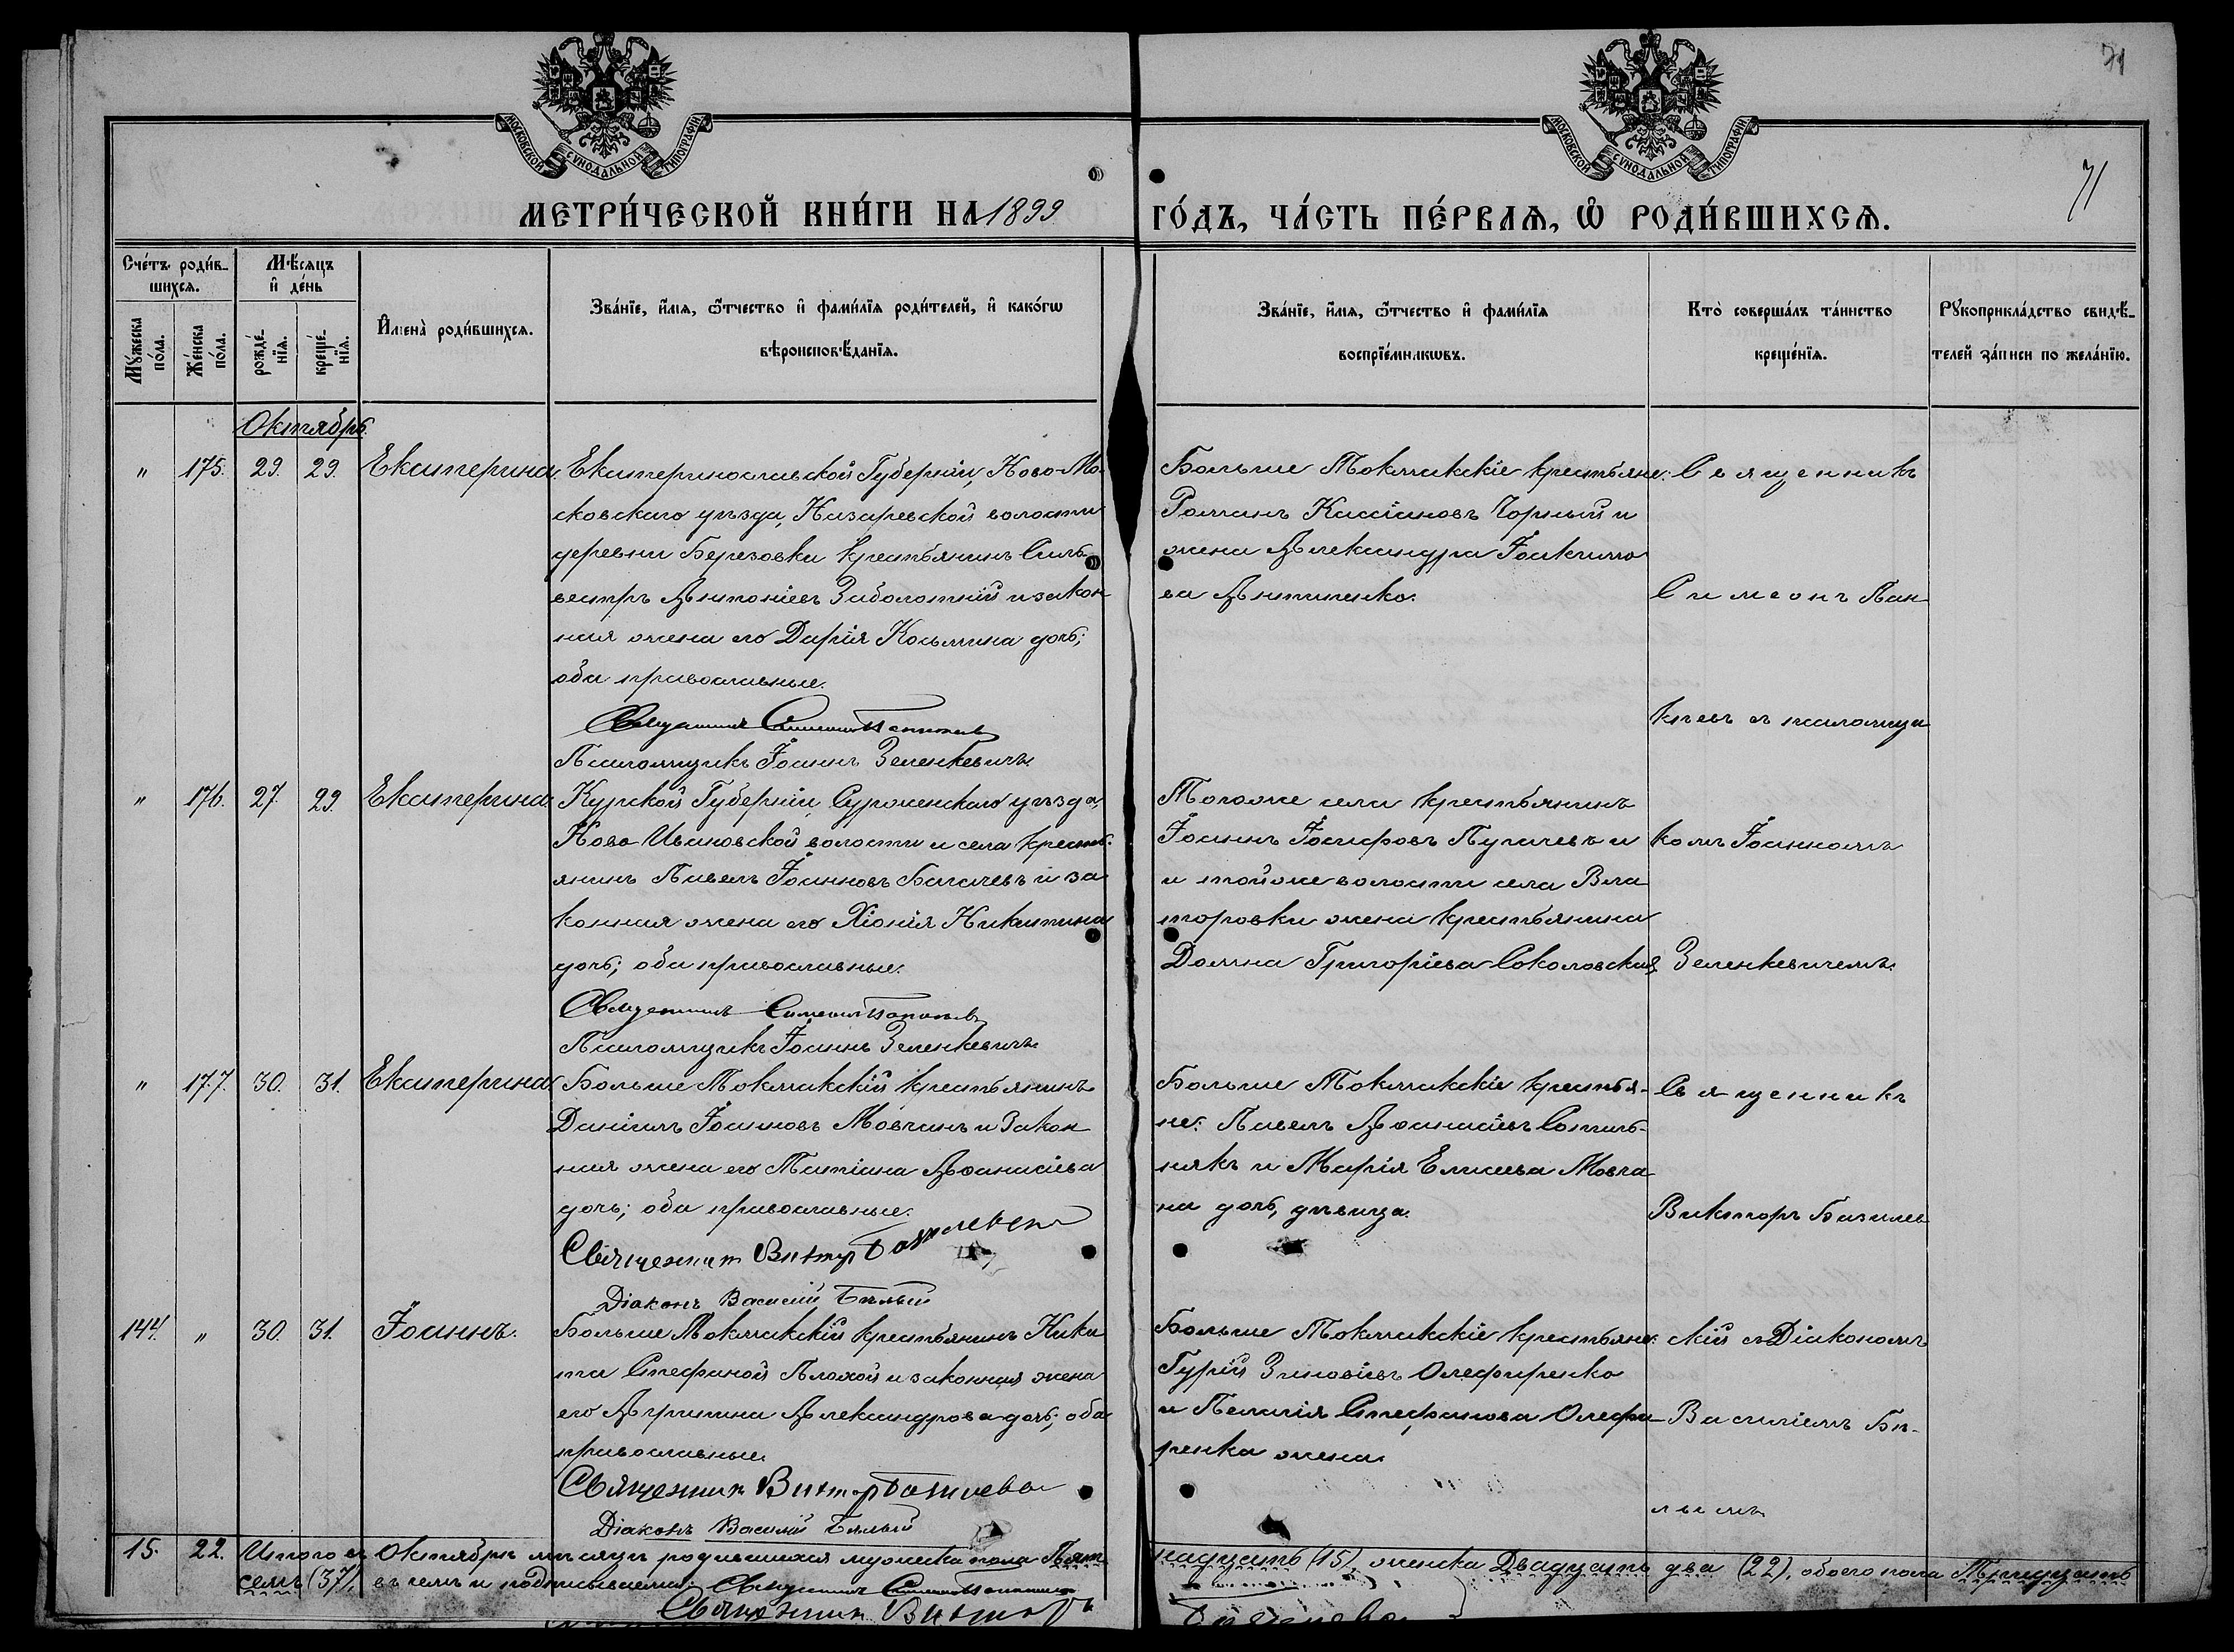 71
МОСКОВСКОЙ СѴНОДАЛЬНОЙ ТИПОГРАФІИ
МОСКОВСКОЙ СѴНОДАЛЬНОЙ ТИПОГРАФІИ
71
МЕТРИ́ЧЕСКОЙ КНИ́ГИ НА 1899 ГО́ДЪ, ЧА́СТЬ ПЕ́РВАЯ, Ѡ РОДИ́ВШИХСЯ.
Сче́тъ роди́в-
шихся.
Мѣ́сяцъ
и де́нь
Мꙋ́жеска по́ла.
Же́нска по́ла.
рожде́-нїя.
креще́-нїя.
Имена̀ роди́вшихся.
Зва́нїе, и́мя, ѻ́тчество и фами́лїя роди́телей, и како́гѡ
вѣроисповѣ́данїя.
Зва́нїе, и́мя, ѻ́тчество и фами́лїя
воспрїе́мникѡвъ.
Кто̀ соверша́лъ та́инство
креще́нїя.
Рꙋкоприкла́дство свидѣ́-
телей за́писи по жела́нїю.
Октябрь.
" 175. 29. 29. Екатерина. Екатеринославской Губерніи, Ново-Мо-
сковскаго уѣзда, Назаревской волости
деревни Березовки крестьянинъ Силь-
вестръ Антоніевъ Заболотній и закон
ная жена его Дарія Косьмина дочь;
оба православные.
Священникъ Симеонъ Попкинъ
Псаломщикъ Іоаннъ Зеленкевичъ.
Больше Токмакскіе крестьяне:
Романъ Кассіановъ Чорный и
жена Александра Іоакимо
ва Антипенко.
Священникъ
Симеонъ Пан
кѣевъ съ псаломщи
" 176. 27. 29. Екатерина Курской Губерніи, Суроженскаго уѣзда,
Ново Ивановской волости и села крестъ-
янинъ Павелъ Іоанновъ Богачевъ и за
конная жена его Хіонія Никитина
дочь; оба православные.
Священникъ Симеонъ
Псаломщикъ Іоаннъ Зеленкевичъ
Тогоже села крестьянинъ
Іоаннъ Іосифовъ Пугачевъ и
и тойже волости села Вла
торовки жена крестьянина
Домна Григоріева Соколовская
комъ Іоанномъ
Зеленкевичемъ.
" 177. 30. 31. Екатерина Больше Токмакскій крестьянинъ
Даніилъ Іоанновъ Мовчанъ и закон
ная жена его Татіана Аѳанасіева
дочь; оба православные.
Священникъ Викторъ
Діаконъ Василій Бѣлый
Больше Токмакскіе крестья-
не: Павелъ Аѳанасіевъ Сотнь-
никъ и Марія Елисѣева Мовча
на дочь, дѣвица.
Священникъ
Викторъ Базилев
144. " 30. 31. Іоаннъ. Больше Токмакскій крестьянинъ Ники
та Стефановъ Плохой и законная жена
его Агрипина Александрова дочь; оба
православные.
Священникъ Викторъ Базилевс
Діаконъ Василій Бѣлый
Больше Токмакскіе крестьяне:
Гурій Зиновіевъ Олефиренко
и Пелагія Стефанова Олефи-
ренка жена.
скій съ Діакономъ
Василіемъ Бѣ-
лымъ
15. 22. Итого въ Октябрѣ мѣсяцѣ родившихся мужеска пола Пят надцать (15), женска Двадцать два (22), обоего пола Тридцать
семь (37), въ чемъ и подписываемся: Священникъ Симеонъ
Священникъ Викторъ